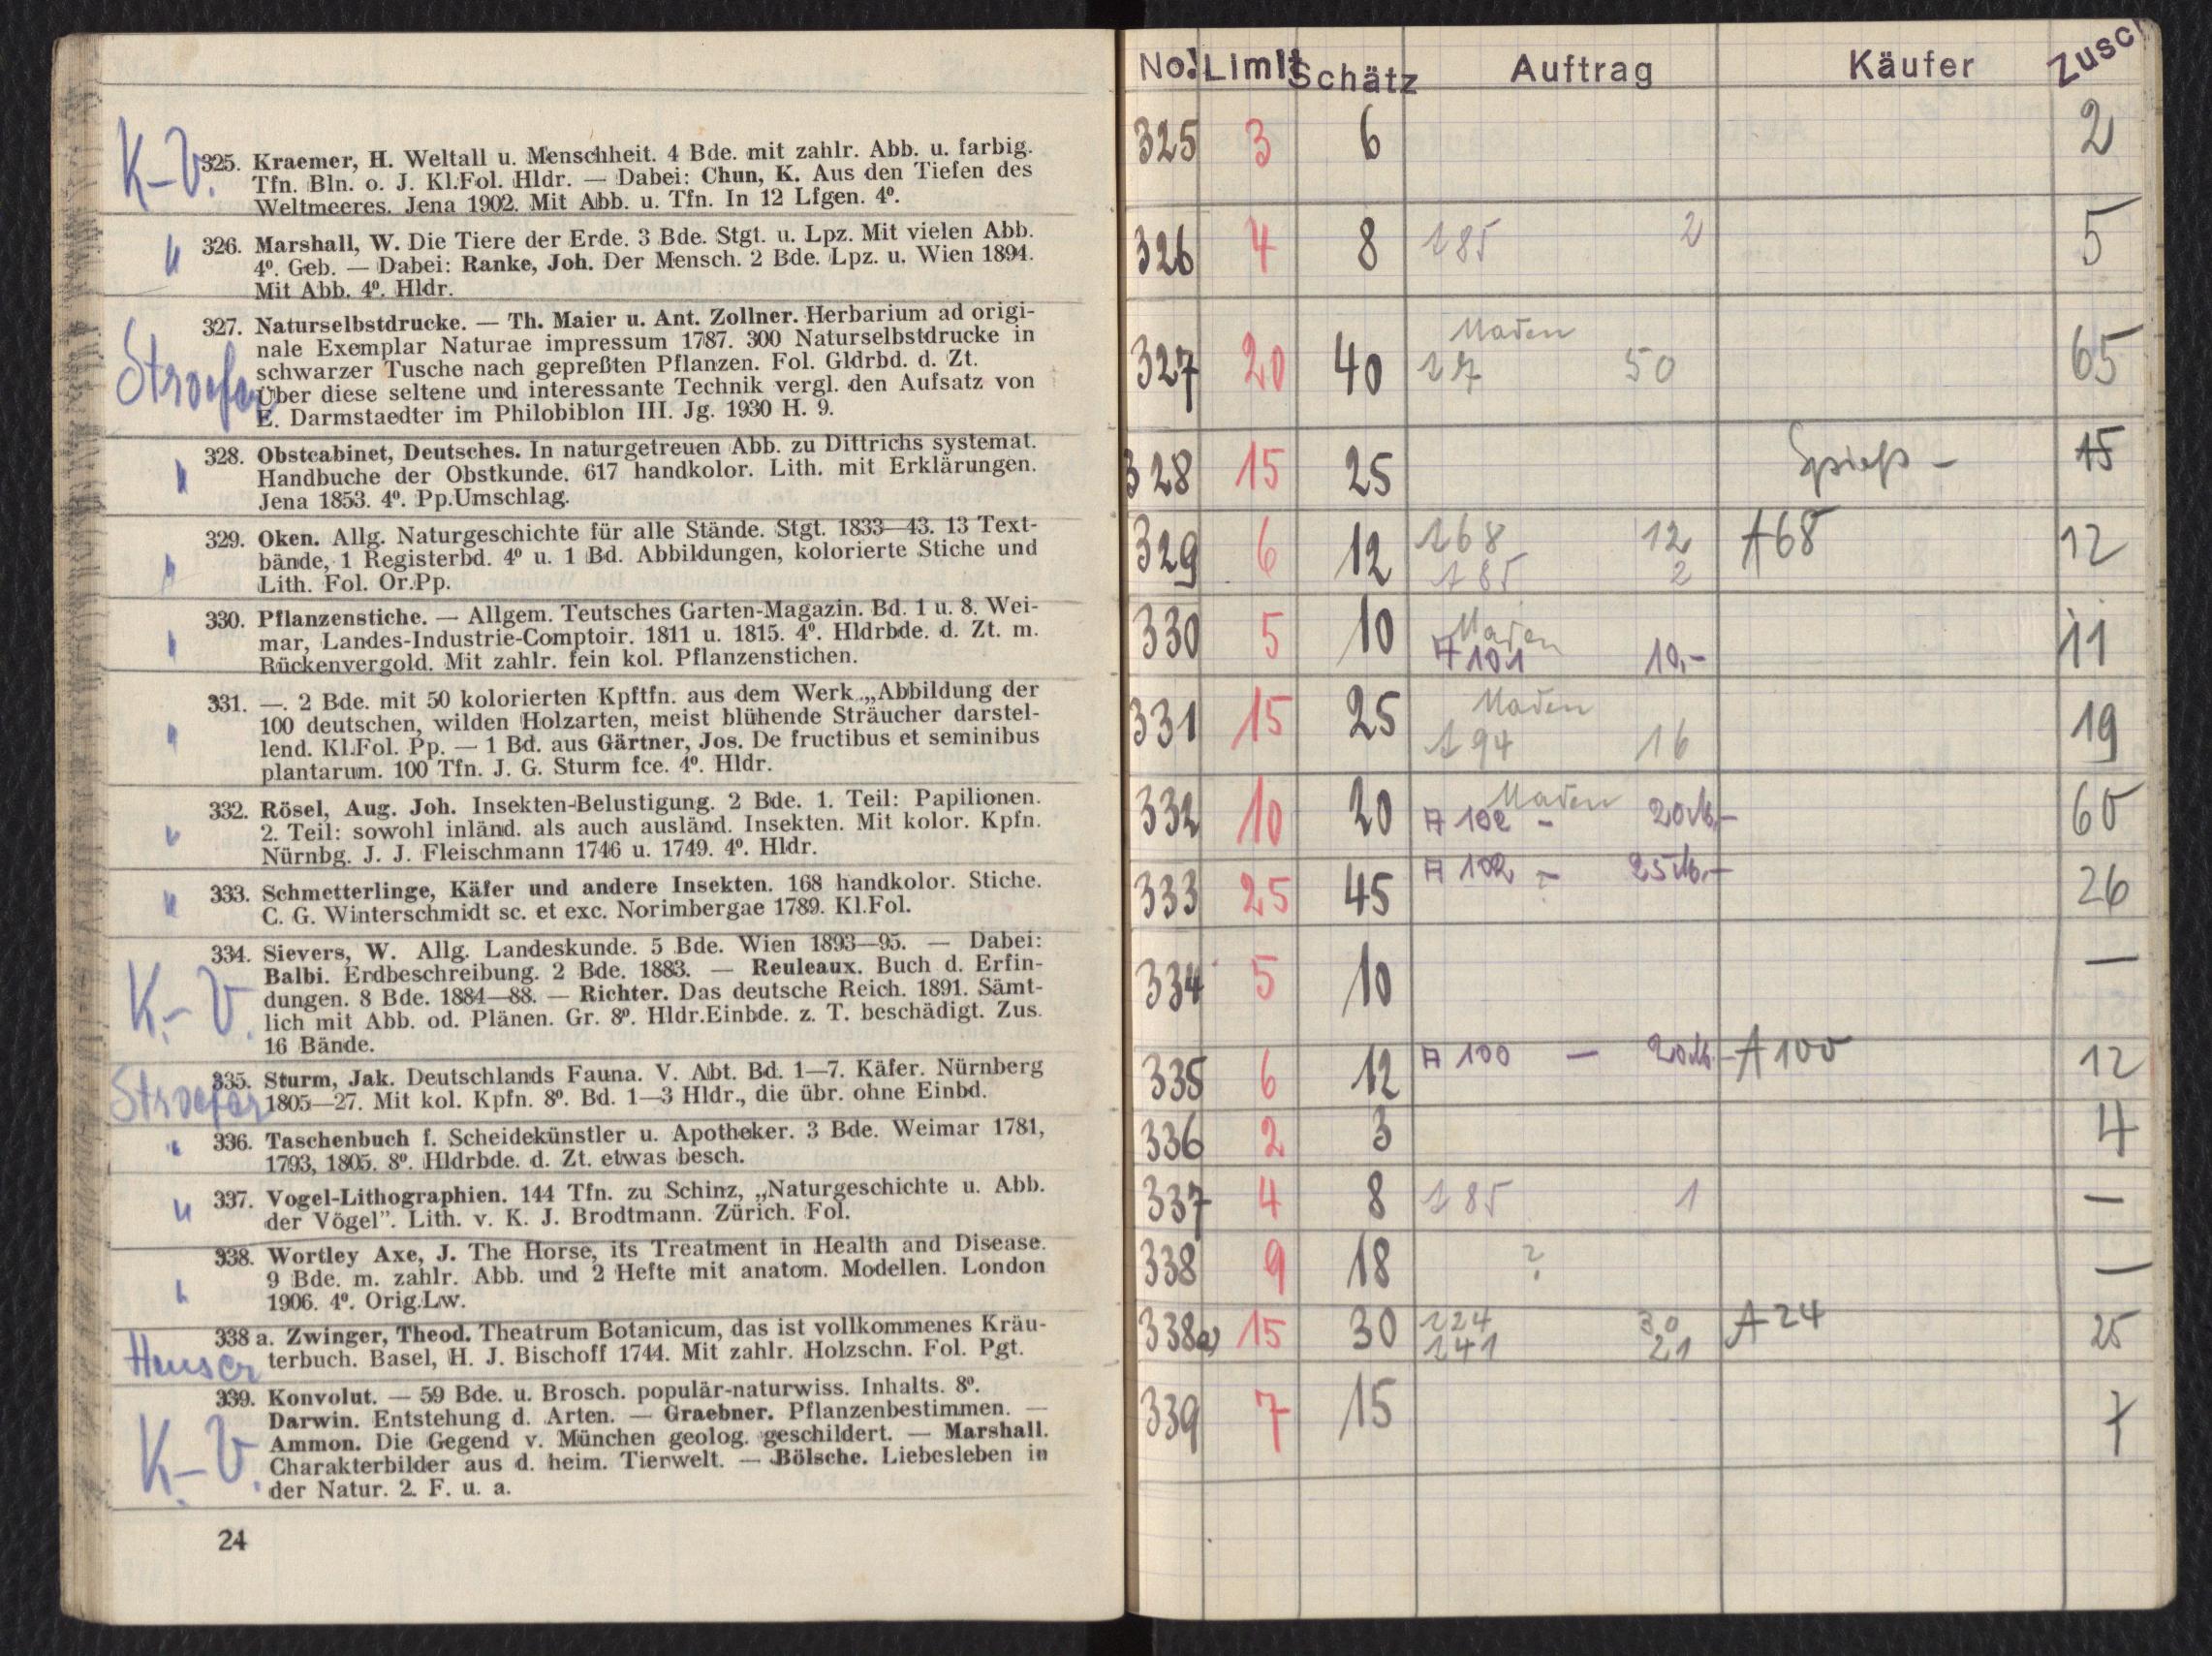 K.-V.
325. Kraemer, H. Weltall u. Menschheit. 4 Bde. mit zahlr. Abb. u. farbig.
Tfn. Bln. o. J. Kl.Fol. Hldr. — Dabei: Chun, K. Aus den Tiefen des
Weltmeeres. Jena 1902. Mit Abb. u. Tfn. In 12 Lfgen. 4⁰.
"
326. Marshall, W. Die Tiere der Erde. 3 Bde. Stgt. u. Lpz. Mit vielen Abb.
4⁰. Geb. — Dabei: Ranke, Joh. Der Mensch. 2 Bde. Lpz. u. Wien 1894.
Mit Abb. 4⁰. Hldr.
Stroefer
327. Naturselbstdrucke. — Th. Maier u. Ant. Zollner. Herbarium ad origi-
nale Exemplar Naturae impressum 1787. 300 Naturselbstdrucke in
schwarzer Tusche nach gepreßten Pflanzen. Fol. Gldrbd. d. Zt.
Über diese seltene und interessante Technik vergl. den Aufsatz von
E. Darmstaedter im Philobiblon III. Jg. 1930 H. 9.
"
328. Obstcabinet, Deutsches. In naturgetreuen Abb. zu Dittrichs systemat.
Handbuche der Obstkunde. 617 handkolor. Lith. mit Erklärungen.
Jena 1853. 4⁰. Pp.Umschlag.
"
329. Oken. Allg. Naturgeschichte für alle Stände. Stgt. 1833—43. 13 Text-
bände, 1 Registerbd. 4⁰ u. 1 Bd. Abbildungen, kolorierte Stiche und
Lith. Fol. Or.Pp.
"
330. Pflanzenstiche. — Allgem. Teutsches Garten-Magazin. Bd. 1 u. 8. Wei-
mar, Landes-Industrie-Comptoir. 1811 u. 1815. 4⁰. Hldrbde. d. Zt. m.
Rückenvergold. Mit zahlr. fein kol. Pflanzenstichen.
"
331. —. 2 Bde. mit 50 kolorierten Kpftfn. aus dem Werk „Abbildung der
100 deutschen, wilden Holzarten, meist blühende Sträucher darstel-
lend. Kl.Fol. Pp. — 1 Bd. aus Gärtner, Jos. De fructibus et seminibus
plantarum. 100 Tfn. J. G. Sturm fce. 4⁰. Hldr.
"
332. Rösel, Aug. Joh. Insekten-Belustigung. 2 Bde. 1. Teil: Papilionen.
2. Teil: sowohl inländ. als auch ausländ. Insekten. Mit kolor. Kpfn.
Nürnbg. J. J. Fleischmann 1746 u. 1749. 4⁰. Hldr.
"
333. Schmetterlinge, Käfer und andere Insekten. 168 handkolor. Stiche.
C. G. Winterschmidt sc. et exc. Norimbergae 1789. Kl.Fol.
K.-V.
334. Sievers, W. Allg. Landeskunde. 5 Bde. Wien 1893—95. — Dabei:
Balbi. Erdbeschreibung. 2 Bde. 1883. — Reuleaux. Buch d. Erfin-
dungen. 8 Bde. 1884—88. — Richter. Das deutsche Reich. 1891. Sämt-
lich mit Abb. od. Plänen. Gr. 8⁰. Hldr.Einbde. z. T. beschädigt. Zus.
16 Bände.
Stroefer
335. Sturm, Jak. Deutschlands Fauna. V. Abt. Bd. 1—7. Käfer. Nürnberg
1805—27. Mit kol. Kpfn. 8⁰. Bd. 1—3 Hldr., die übr. ohne Einbd.
"
336. Taschenbuch f. Scheidekünstler u. Apotheker. 3 Bde. Weimar 1781,
1793, 1805. 8⁰. Hldrbde. d. Zt. etwas besch.
"
337. Vogel-Lithographien. 144 Tfn. zu Schinz, „Naturgeschichte u. Abb.
der Vögel”. Lith. v. K. J. Brodtmann. Zürich. Fol.
"
338. Wortley Axe, J. The Horse, its Treatment in Health and Disease.
9 Bde. m. zahlr. Abb. und 2 Hefte mit anatom. Modellen. London
1906. 4⁰. Orig.Lw.
Heuser
338 a. Zwinger, Theod. Theatrum Botanicum, das ist vollkommenes Kräu-
terbuch. Basel, H. J. Bischoff 1744. Mit zahlr. Holzschn. Fol. Pgt.
K.-V.
339. Konvolut. — 59 Bde. u. Brosch. populär-naturwiss. Inhalts. 8⁰.
Darwin. Entstehung d. Arten. — Graebner. Pflanzenbestimmen. —
Ammon. Die Gegend v. München geolog. geschildert. — Marshall.
Charakterbilder aus d. heim. Tierwelt. — Bölsche. Liebesleben in
der Natur. 2. F. u. a.
24
No. Limit Schätz Auftrag Käufer Zusch
325 3 6 2
326 4 8 185 2 5
Maden
327 20 40 17 50 65
328 15 25 Spieß – 15
329 6 12 168 12 A68 12
185 2
Maden
330 5 10 A 101 10.- 11
Maden
331 15 25 194 16 19
Maden
332 10 20 A 102 - 20M.- 60
333 25 45 A 102 - 25M.- 26
334 5 10 —
335 6 12 A 100 — 20M.- A 100 12
336 2 3 4
337 4 8 185 1 —
338 9 18 ? —
338a) 15 30 124 30 A 24 25
141 21
339 7 15 7